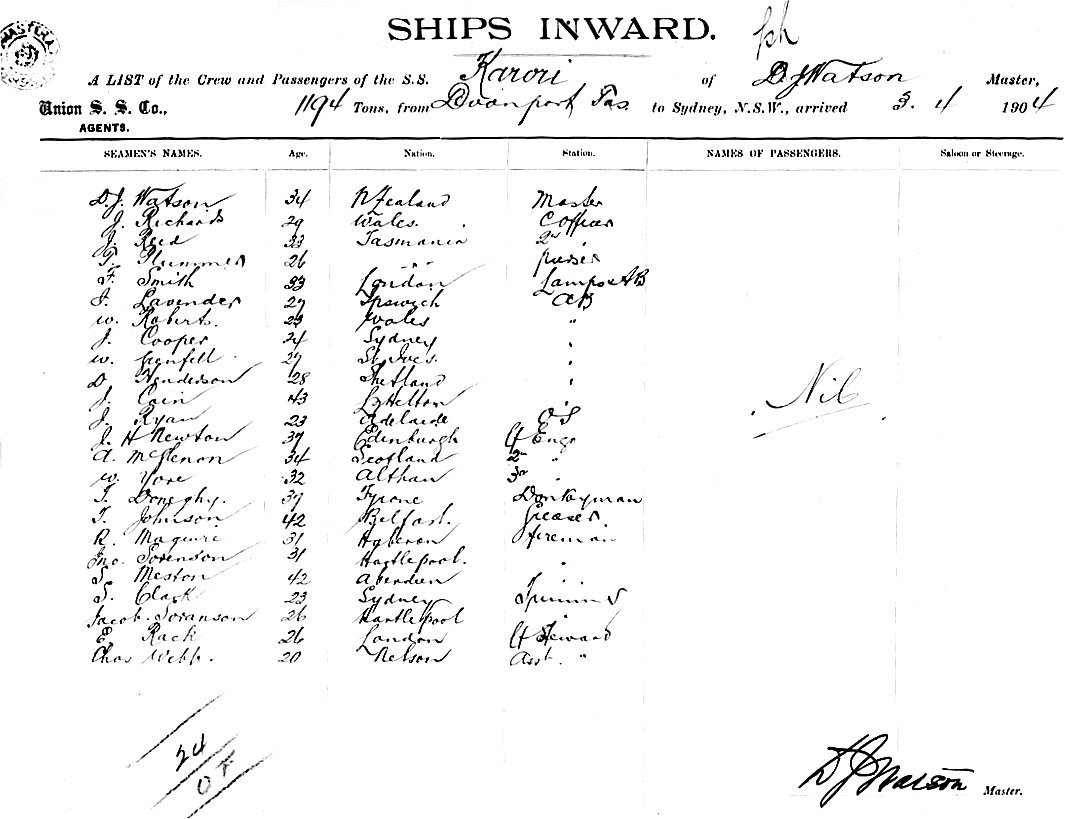 SHIPS INWARD.
A LIST of the Crew and Passengers of the S.S. Karori of D J Watson Master,
Union S. S. Co., 1194 Tons, from Devonport Tas to Sydney, N.S.W., arrived 3. 4 1904
AGENTS.
SEAMEN'S NAMES. Age. Nation. Station. NAMES OF PASSENGERS. Saloon or Steerage.
D.J. Watson 34 N Zealand Master
J. Richards 29 Wales. C Officer
J. Reed 33 Tasmania 2nd "
T. Plummer 26 " "
F. Smith 33 London Lamps & AB
J. Lavender 27 Ipswich AB
W. Roberts. 23 Wales "
J. Cooper 24 Sydney "
W. Grenfell 27 St Ives. "
D. Henderson 28 Shetland "
J. Cain 43 Lyttelton
J. Ryan 23 Adelaide OS
J. H Newton 37 Edinburgh Cf Engr
A. 34 Scotland 2nd "
W. Yore 32 3rd "
T. Doneghy. 37 Tyrone Donkeyman
T. Johnson 42 Belfast. Greaser.
R. Maguire 31 Fireman
Jno. Sorenson 31 Hartlepool. "
S. Meston 42 Aberdeen "
S. Clark 23 Sydney Trimmer
Jacob. Soranson 26 Hartlepool "
E. Rack 26 London Cf Steward
Chas Webb. 20 Nelson Asst. "
Nil
24
D J Watson Master.